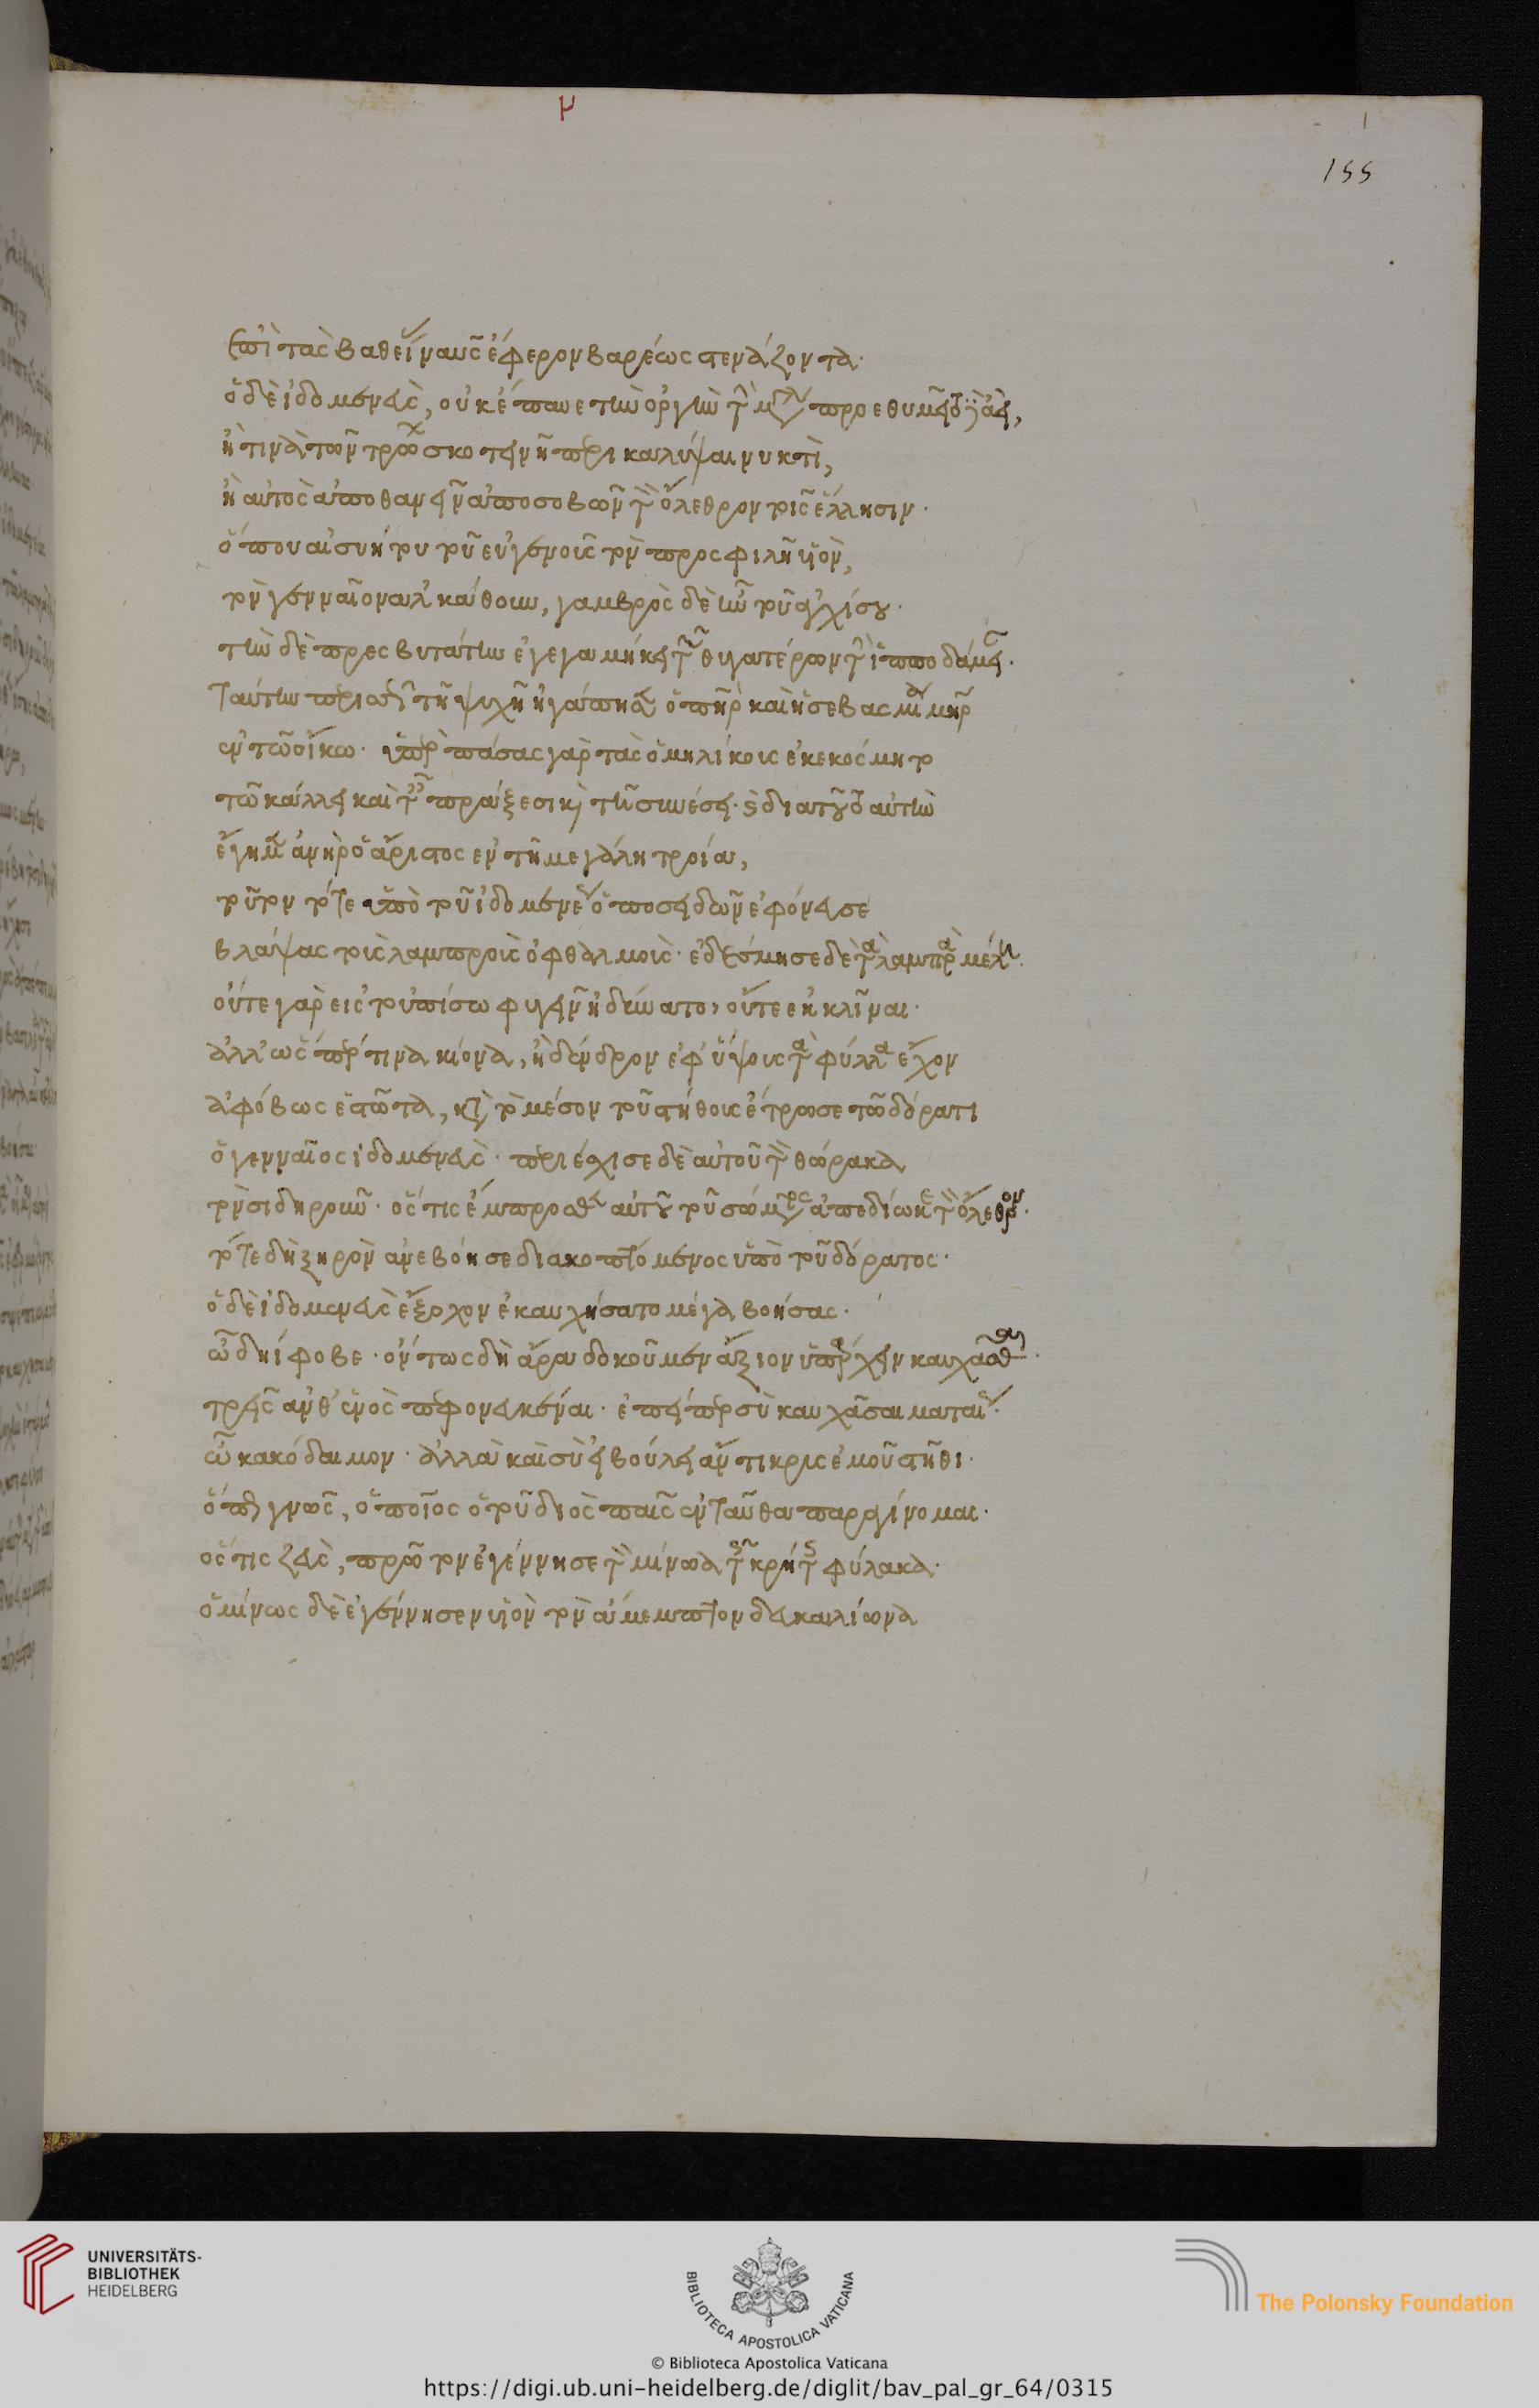 μ
155
ἐπὶ τὰς βαθείας ναῦς ἔφερον βαρέως στενάζοντα·
ὁ δὲ ἰδομενεὺς, οὐκ ἔπαυε τὴν ὀργὴν τὴν μεγάλην προεθυμεῖτο δὲ ἀεὶ,
ἤ τινὰ τῶν τρώων σκοτεινῆ περικαλύψαι νυκτὶ,
ἢ αὐτὸς ἀποθανεῖν ἀποσοβῶν τὸν ὄλεθρον τοῖς ἕλλησιν·
ὅπου αἰσυήτου τοῦ εὐγενοῦς τὸν προσφιλῆ υἱὸν,
τὸν γενναῖον ἀλκάθουν, γαμβρὸς δὲ ἦν τοῦ ἀγχίσου·
τὴν δὲ πρεσβυτάτην ἐγεγαμήκει τῶν θυγατέρων τὴν ἱπποδάμειαν·
ταύτην περισσῶς τῆ ψυχῆ ἠγάπησεν ὁ πατὴρ καὶ ἡ σεβασμία μήτηρ
ἐν τῶ οἴκω· ὑπὲρ πάσας γὰρ τὰς ὁμηλίκους ἐκεκόσμητο
τῶ κάλλει καὶ ταῖς πράξεσι καὶ τῆ συνέσει· καὶ διατοῦτο αὐτὴν
ἔγημεν ἀνὴρ ὁ ἄριστος ἐν τῆ μεγάλη τροία,
τοῦτον τότε ὑπὸ τοῦ ἰδομενέως ὁ ποσειδῶν ἐφόνευσε
βλάψας τοὺς λαμπροὺς ὀφθαλμοὺς· ἐδέσμησε δὲ τὰ λαμπρὰ μέλη·
οὔτε γὰρ εἰς τοὐπίσω φυγεῖν ἠδύνατο, οὔτε ἐκκλῖναι·
ἀλλ' ὥσπερ τινὰ κίονα, ἢ δένδρον ἐφ' ὕψους τὰ φύλλα ἔχον
ἀφόβως ἑστῶτα, κατὰ τὸ μέσον τοῦ στήθους ἔτρωσε τῶ δόρατι
ὁ γενναῖος ἰδομενεὺς· περιέσχισε δὲ αὐτοῦ τὸν θώρακα
τὸν σιδηροῦν· ὅστις ἔμπροσθεν αὐτοῦ τοῦ σώματος ἀπεδίωκε τὸν ὄλεθρον·
τότε δὴ ξηρὸν ἀνεβόησε διακοπτόμενος ὑπὸ τοῦ δόρατος·
ὁ δὲ ἰδομενεὺς ἔξοχον ἐκαυχήσατο μέγα βοήσας·
ὦ δηίφοβε· ὄντως δὴ ἄρα δοκοῦμεν ἄξιον ὑπάρχειν καυχᾶσθαι·
τρεῖς ἀνθ' ἑνὸς πεφονευκέναι· ἐπείπερ σὺ καυχᾶσαι ματαίως·
ὦ κακόδαιμον· ἀλλὰ καὶ σὺ εἰ βούλει ἄντικρυς ἐμοῦ στῆθι·
ὅπως γνῶς, ὁποῖος ὁ τοῦ διὸς παῖς ἐνταῦθα παραγίνομαι·
ὅστις ζεὺς, πρῶτον ἐγέννησε τὸν μίνωα τῆς κρήτης φύλακα·
ὁ μίνως δὲ ἐγέννησεν υἱὸν τὸν ἄμεμπτον δευκαλίωνα
UNIVERSITÄTS-
BIBLIOTHEK
HEIDELBERG
BIBLIOTECA APOSTOLICA VATICANA
The Polonsky Foundation
© Biblioteca Apostolica Vaticana
https://digi.ub.uni-heidelberg.de/diglit/bav_pal_gr_64/0315